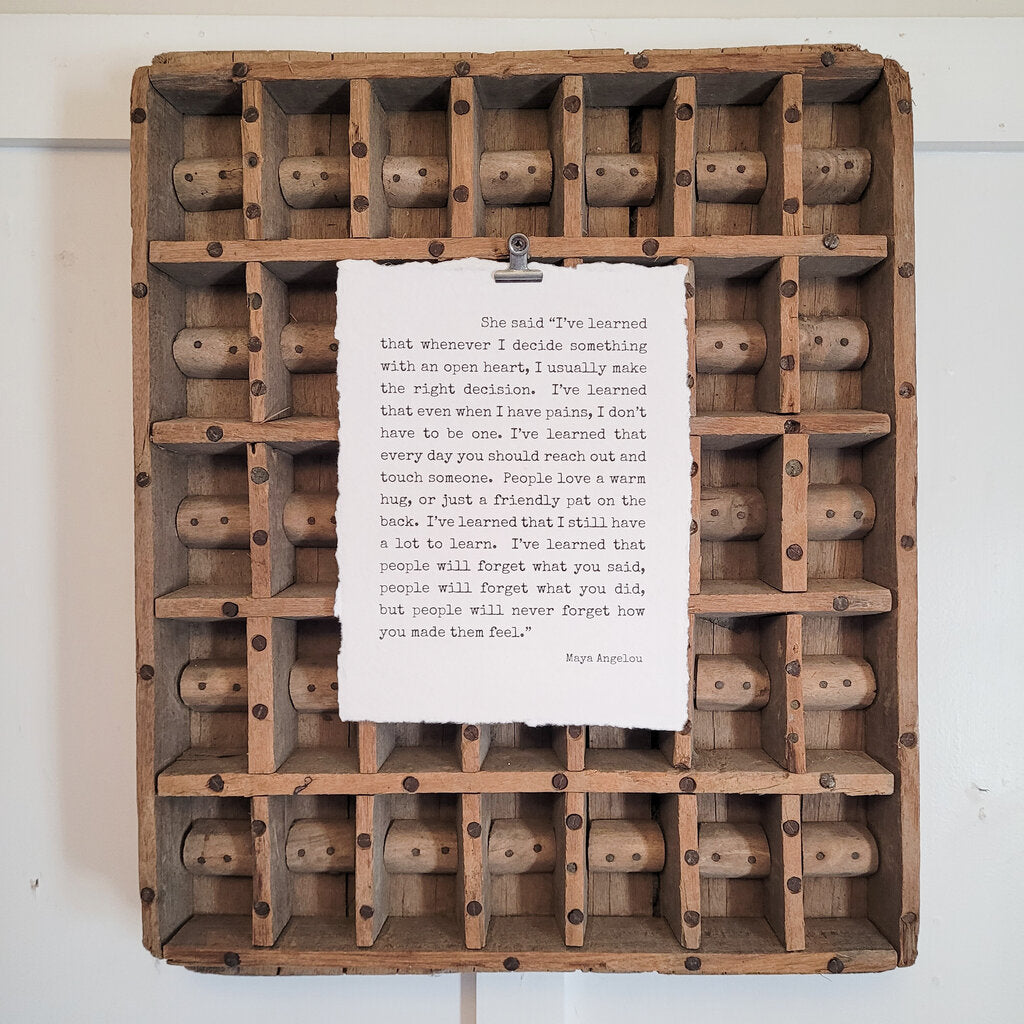 She said “I’ve learned
that whenever I decide something
with an open heart, I usually make
the right decision. I’ve learned
that even when I have pains, I don’t
have to be one. I’ve learned that
every day you should reach out and
touch someone. People love a warm
hug, or just a friendly pat on the
back. I’ve learned that I still have
a lot to learn. I’ve learned that
people will forget what you said,
people will forget what you did,
but people will never forget how
you made them feel.”
Maya Angelou